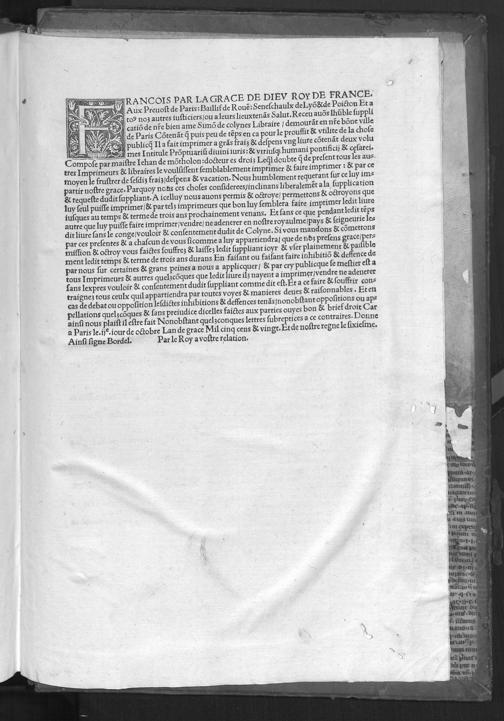 FRANCOIS PAR LA GRACE DE DIEV ROY DE FRANCE.
Aux Preuost de Paris: Baillif de Rouē: Seneschaulx de Lyō & de Poictou Et a
to⁹ nos autres iusticiers/ou a leurs lieutenās Salut. Receu auōs lhūble suppli
catiō de nr̄e bien ame Simō de colynes Libraire / demourāt en nr̄e bōne ville
de Paris Cōtenāt q̄ puis peu de tēps en ca pour le prouffit & vtilite de la chose
publicq̄ Il a fait imprimer a grās frais & despens vng liure cōtenāt deux volu
mes Intitule Prōptuariū diuini iuris: & vtriusq̄ humani pontificij & cesarei.
Compose par maistre Iehan de mōtholon: docteur es drois Leq̄l doubte q̄ de present tous les aus
tres Imprimeurs & libraires le voulsissent semblablement imprimer & faire imprimer: & par ce
moyen le frustrer de sesdis frais/despens & vacation. Nous humblement requerant sur ce luy im
partir nostre grace. Parquoy no⁹ ces choses considerees/inclinans liberalemēt a la supplication
& requeste dudit suppliant. A icelluy nous auons permis & octroye/ permettons & octroyons que
luy seul puisse imprimer/ & par tels imprimeurs que bon luy semblera faire imprimer ledit liure
iusques au temps & terme de trois ans prochainement venans. Et sans ce que pendant ledit tēps
autre que luy puisse faire imprimer/vendre/ ne adenerer en nostre royaulme/pays & seigneurie les
dit liure sans le conge/vouloir & consentement dudit de Colyne. Si vous mandons & cōmettons
par ces presentes & a chascun de vous si comme a luy appartiendra/ que de no⁹ presens grace/per
mission & octroy vous faictes souffrez & laisses ledit suppliant ioyr & vser plainement & paisible
ment ledit temps & terme de trois ans durans En faisant ou faisant faire inhibitiō & deffence de
par nous sur certaines & grans peines a nous a applicquer/ & par cry publicque se mestier est a
tous Imprimeurs & autres quelscōques que ledit liure ils nayent a imprimer/ vendre ne adenerer
sans lexpres vouloir & consentement dudit suppliant comme dit est. Et a ce faire & souffrir cons
traignes tous ceulx quil appartiendra par toutes voyes & manieres deues & raisonnables. Et en
cas de debat ou opposition lesdictes inhibitions & deffences tenās/nonobstant oppositions ou ap
pellations quelscōques & sans preiudice dicelles faictes aux parties ouyes bon & brief droit Car
ainsi nous plaist il estre fait Nonobstant quelsconques lettres subreptices a ce contraires. Donne
a Paris le iour de octobre Lan de grace Mil cinq cens & vingt. Et de nostre regne le sixiesme.
Ainsi signe Bordel. Par le Roy a vostre relation.